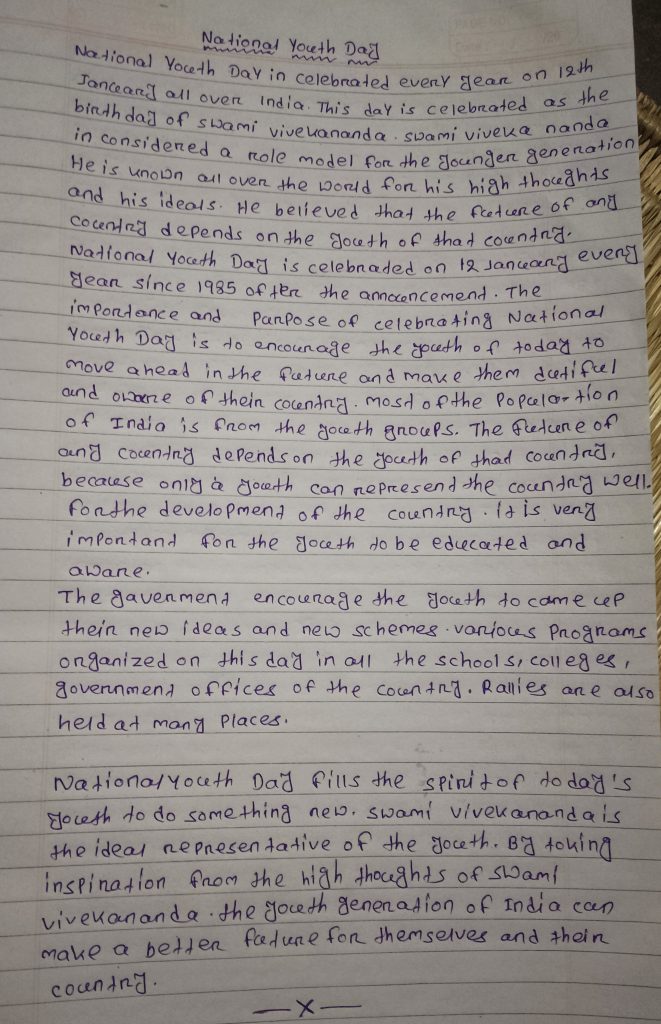 National Youth Day
National Youth Day in celebrated every year on 12th
January all over India. This day is celebrated as the
birthday of swami vivekananda. swami viveka nanda
in considered a role model for the younger generation
He is known all over the world for his high thoughts
and his ideals. He believed that the future of any
country depends on the youth of that country.
National Youth Day is celebrated on 12 January every
year since 1985 often the announcement. The
importance and Parpose of celebrating National
Youth Day is to encourage the youth of today to
move ahead in the future and make them dutiful
and oware of their country. most of the Population
of India is from the youth groups. The future of
any country depends on the youth of that country,
because only a youth can represent the country well.
for the development of the country. it is very
important for the youth to be educated and
aware.
The gavenment encourage the youth to came up
their new ideas and new schemes. various Programs
organized on this day in all the schools, colleges,
government offices of the country. Rallies are also
held at many Places.
National youth Day fills the spirit of today's
youth to do something new. swami vivekananda is
the ideal representative of the youth. By taking
inspiration from the high thoughts of swami
vivekananda. the youth generation of India can
make a better future for themselves and their
country.
—x—